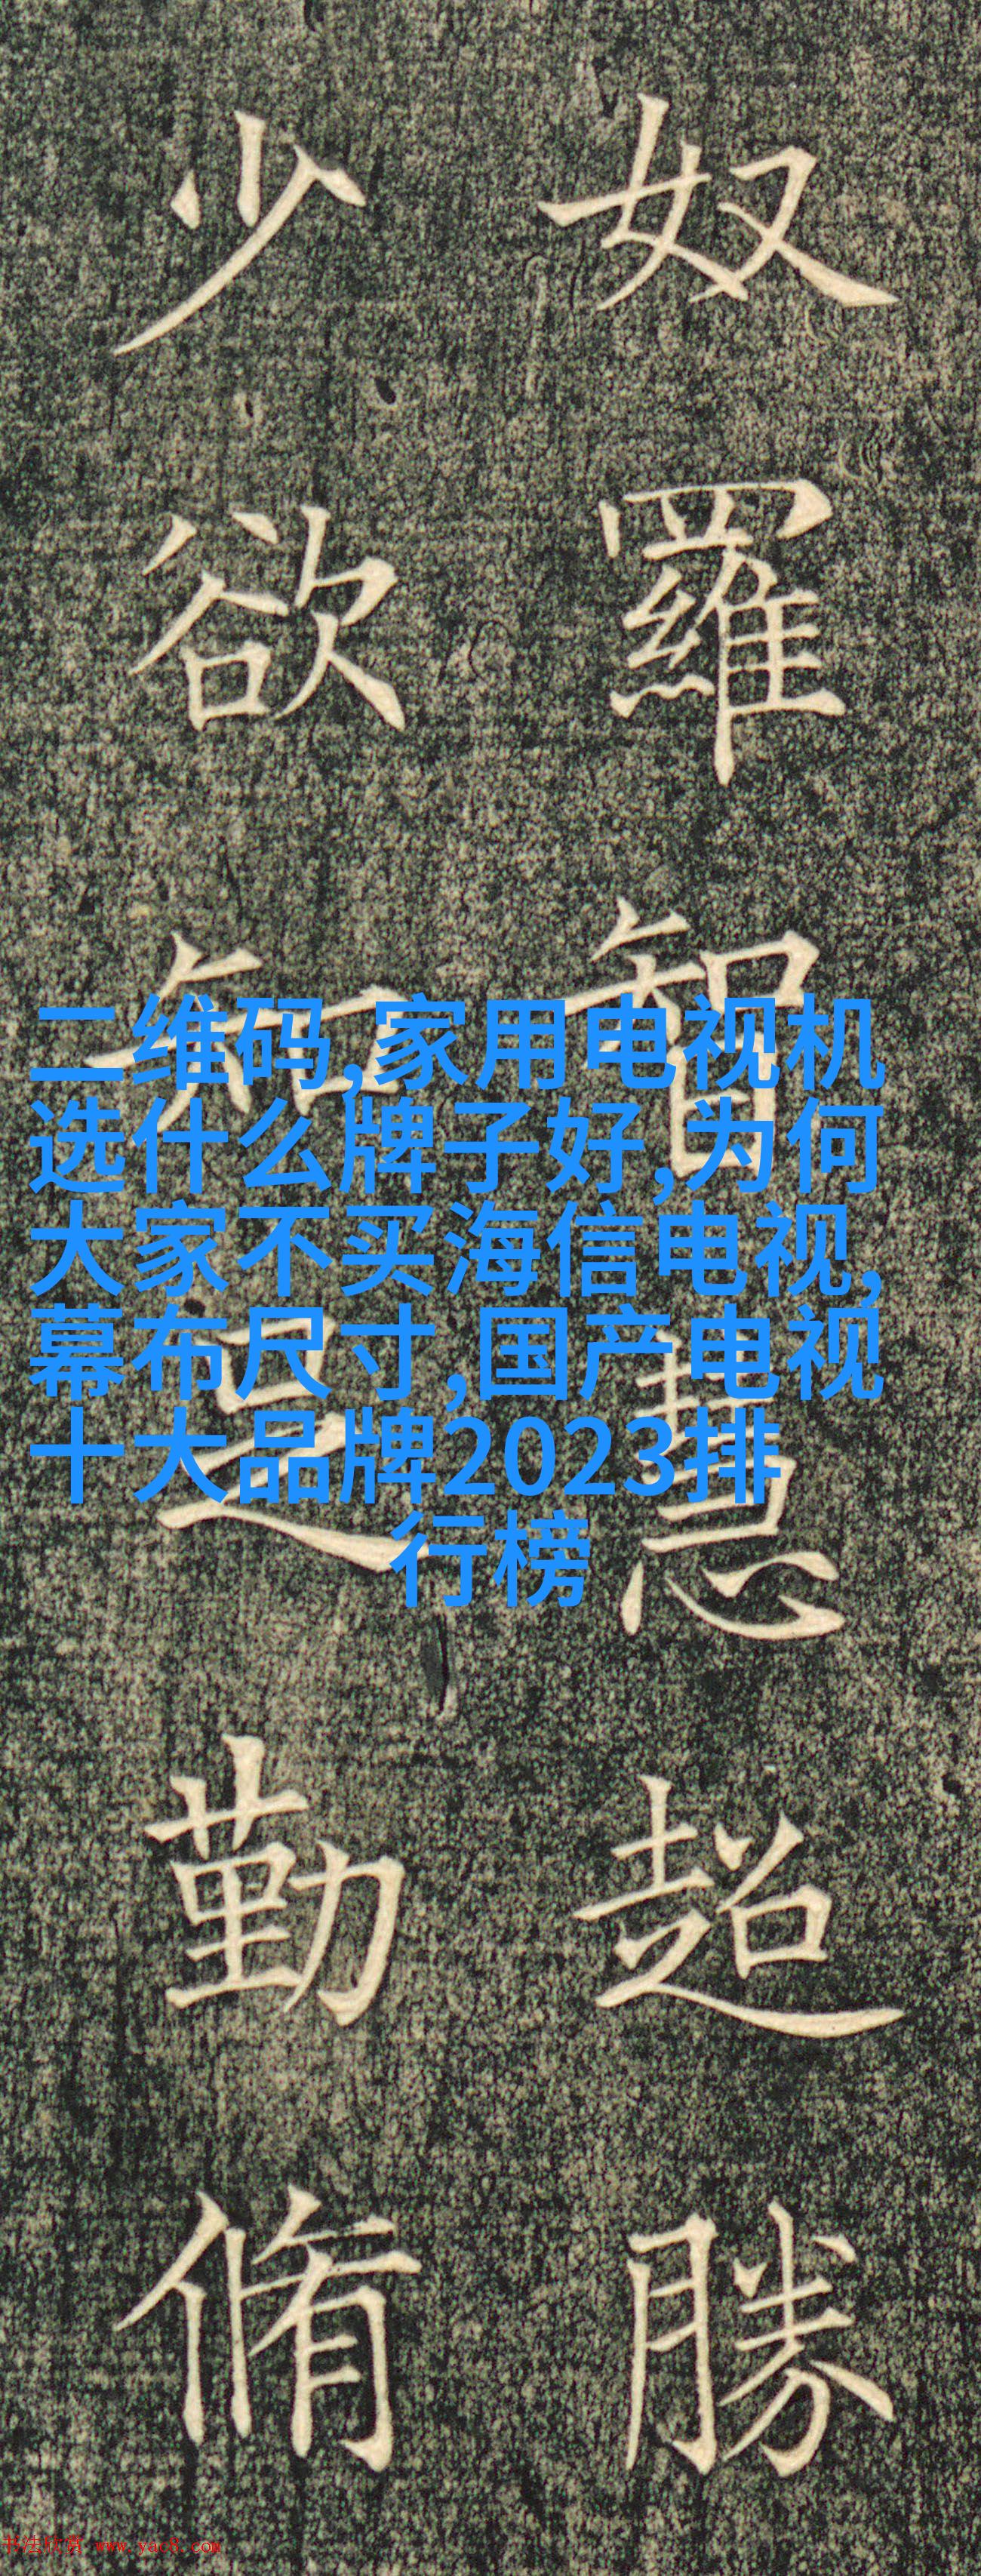 奴羅智慧超勝
少欲知足勤脩
二维码,家用电视机
选什么牌子好,为何
大家不买海信电视,
幕布尺寸,国产电视
十大品牌2023排
行榜
书法欣赏 www.yac8.com